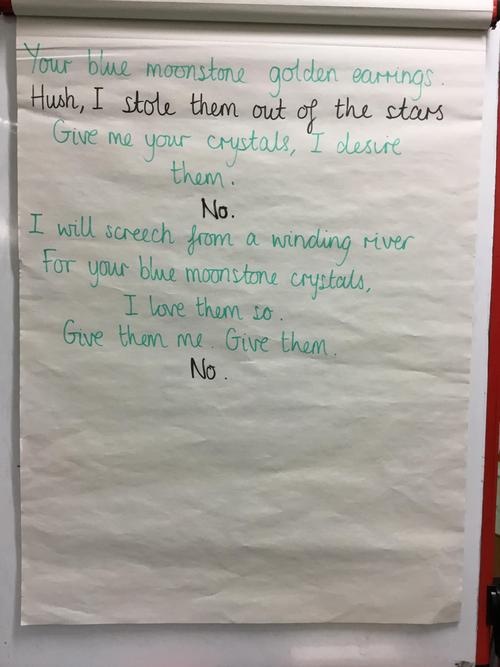 Your blue moonstone golden earrings.
Hush, I stole them out of the stars
Give me your crystals, I desire
them.
No.
I will screech from a winding river
For your blue moonstone crystals,
I love them so.
Give them me. Give them.
No.